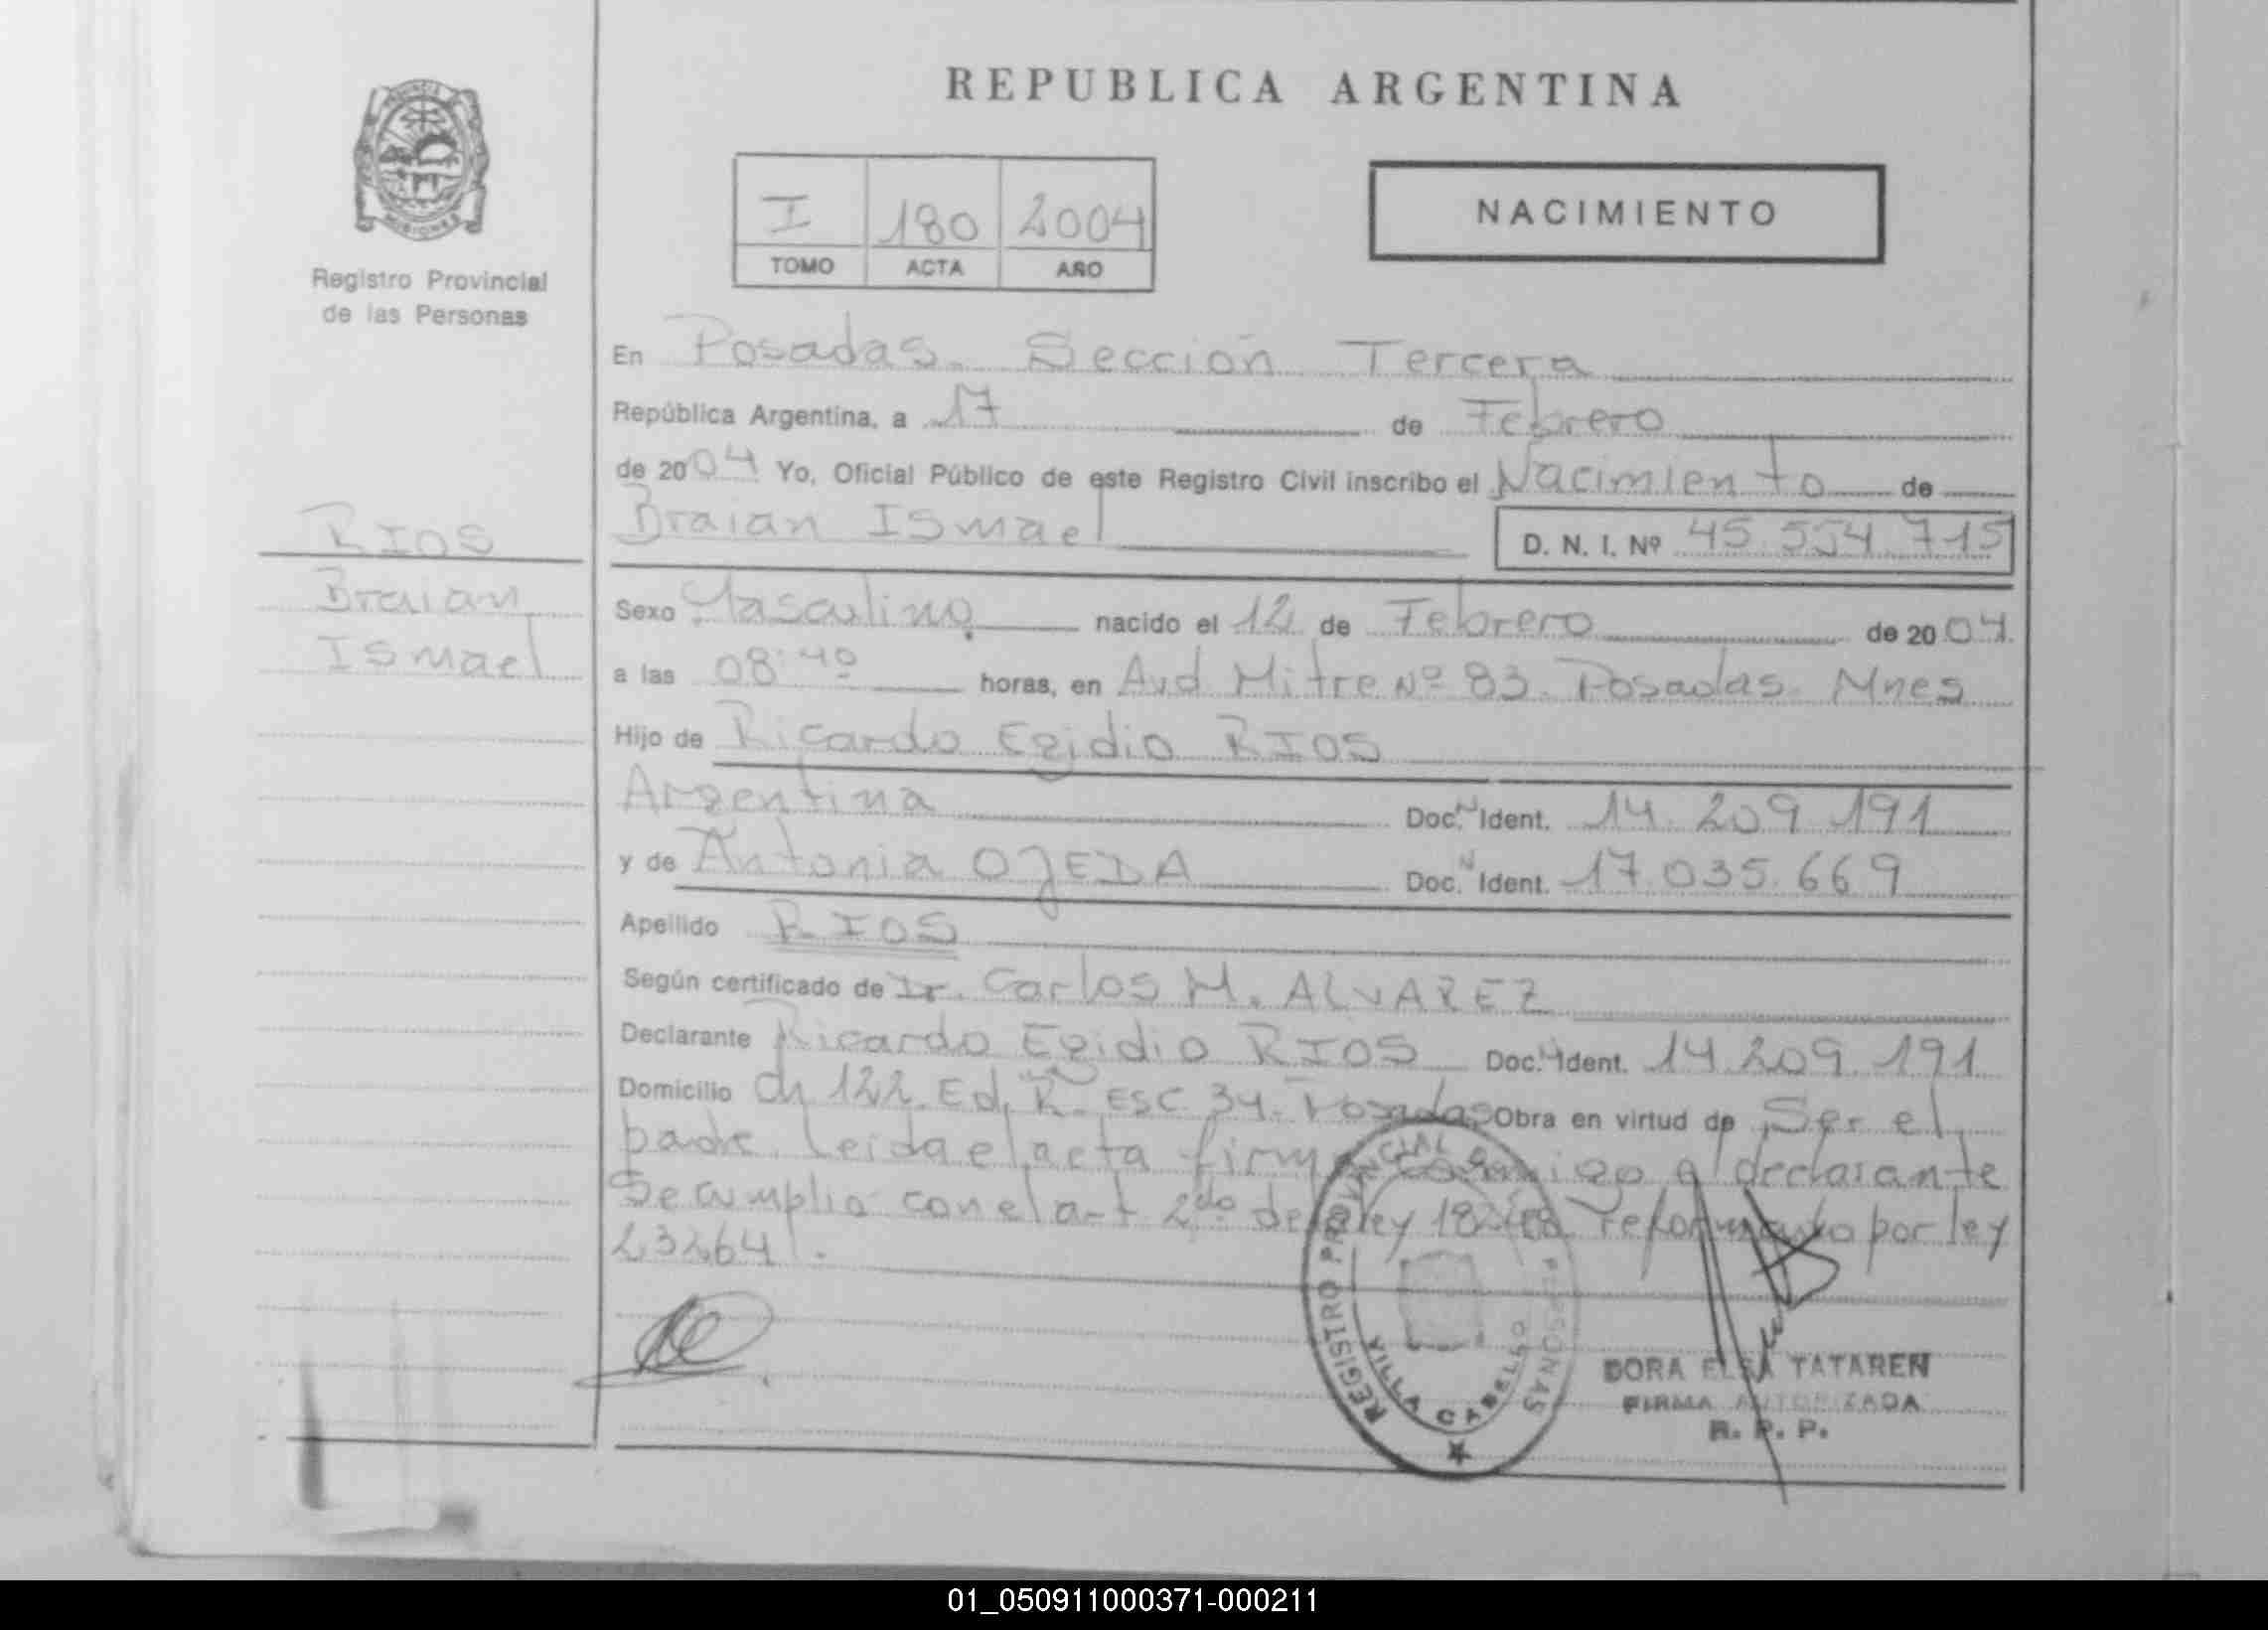 REPUBLICA ARGENTINA
PROVINCIA
MISIONES
Registro Provincial
de las Personas
I 180 2004
TOMO ACTA AÑO
NACIMIENTO
En Posadas. Sección Tercera
República Argentina, a 17 de Febrero
de 2004 Yo, Oficial Público de este Registro Civil inscribo el Nacimiento de
RIOS
Braian Ismael D. N. I. Nº 45.554.715
Braian
Ismael
Sexo Masculino nacido el 12 de Febrero de 2004.
a las 08:40 horas, en Avd Mitre Nº 83. Posadas. Mnes
Hijo de Ricardo Egidio RIOS
Argentina Doc. N Ident. 14.209.191
y de Antonia OJEDA Doc. N Ident. 17.035.669
Apellido RIOS
Según certificado de Dr. Carlos M. ALVAREZ
Declarante Ricardo Egidio RIOS Doc. N Ident. 14.209.191
Domicilio Ch 122. Ed. R. Esc 34. Posadas Obra en virtud de Ser el
padre. Leida el acta firma conmigo el declarante
Se cumplio con el art 2do de la ley 18248 reformado por ley
23264.
REGISTRO PROVINCIAL PERSONAS
VILLA CABELLO
DORA ELSA TATAREN
FIRMA AUTORIZADA
R. P. P.
01_050911000371-000211